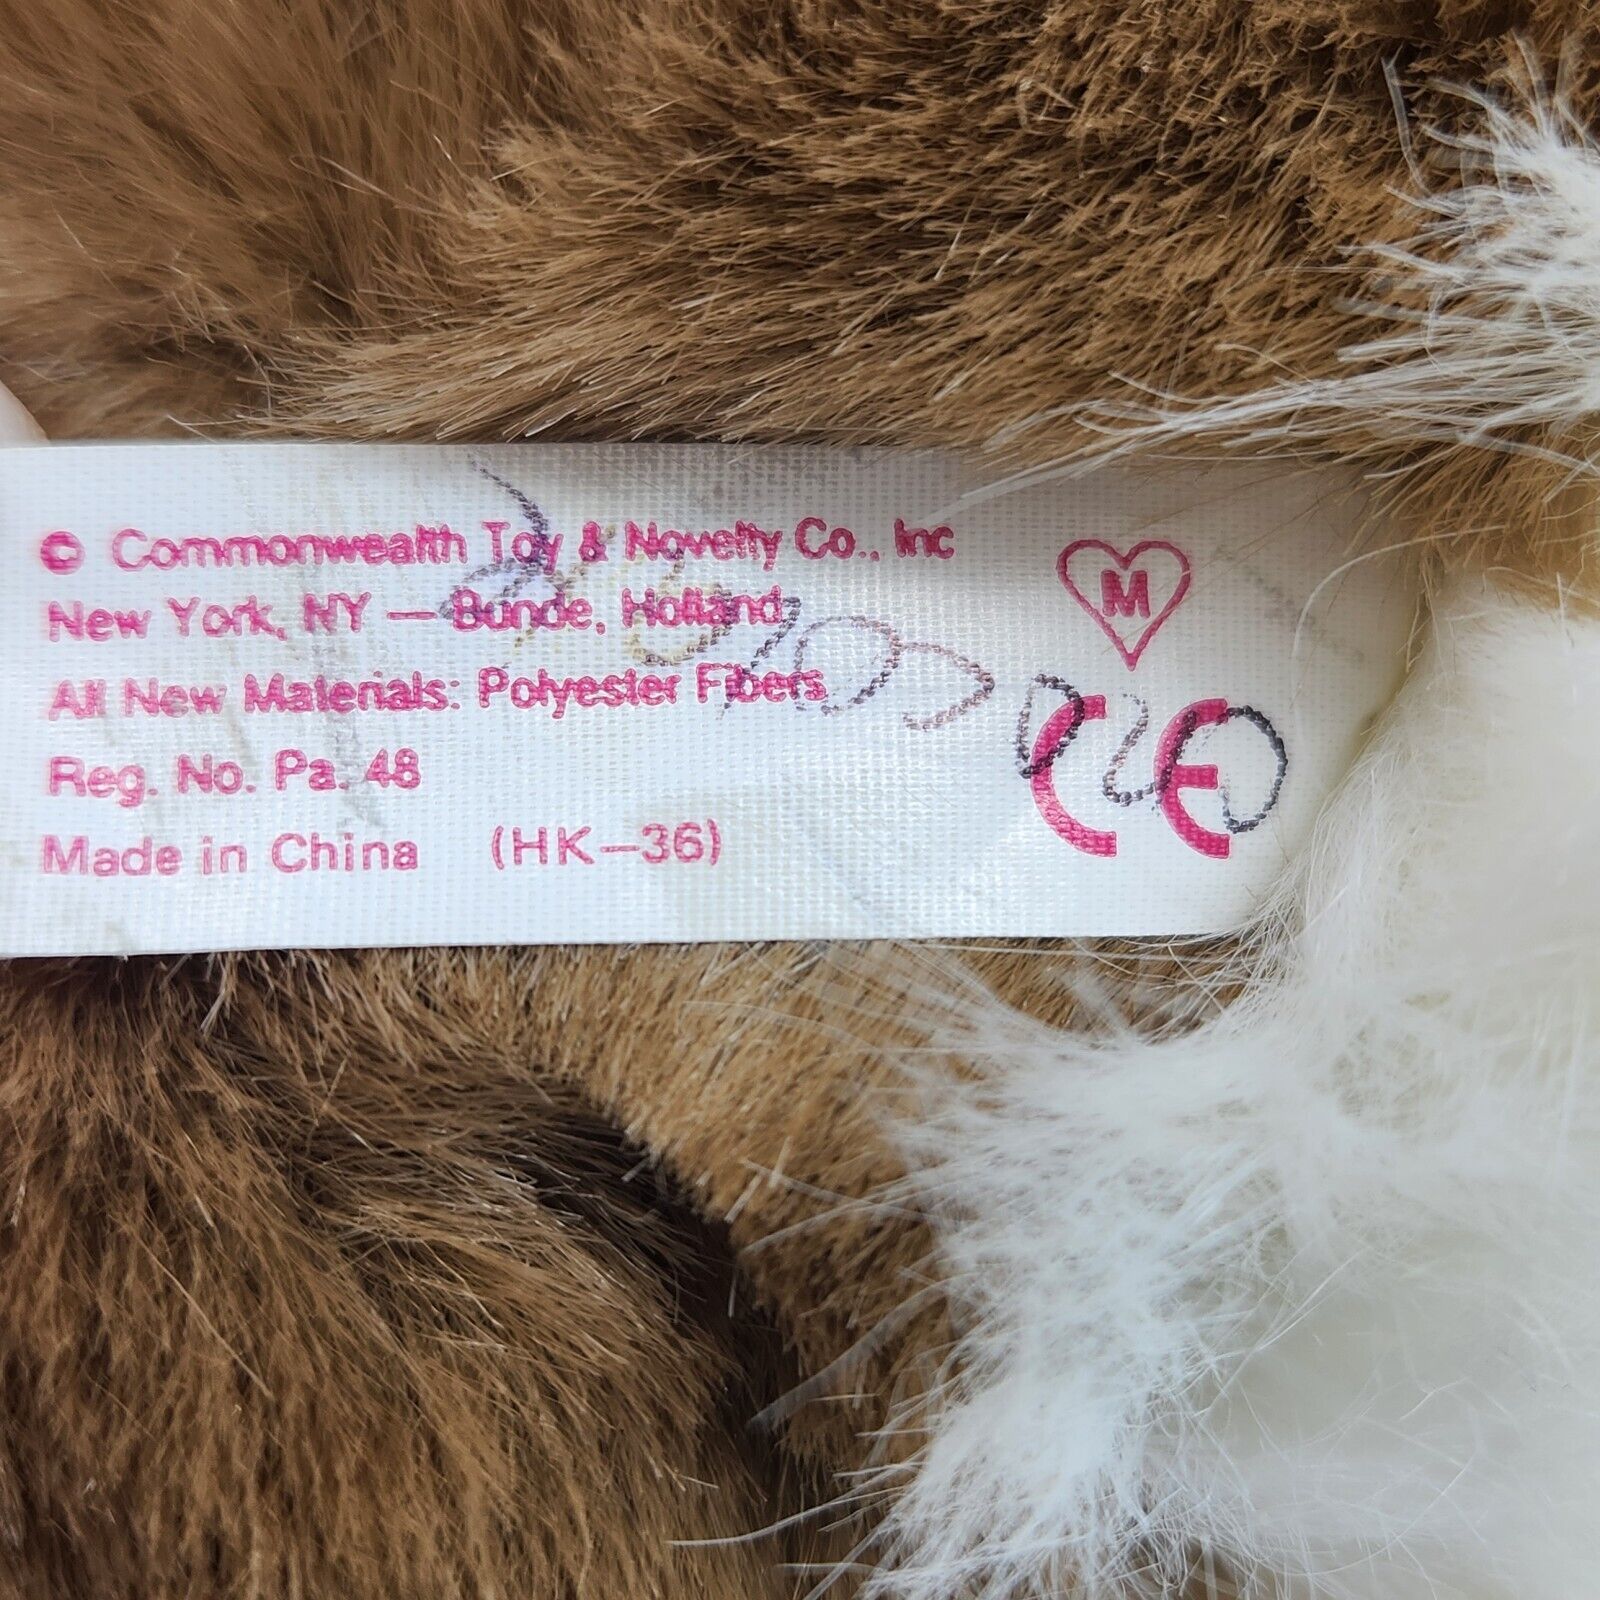 © Commonwealth Toy & Novelty Co., Inc
New York, NY — Bunde, Holland
All New Materials: Polyester Fibers
Reg. No. Pa. 48
Made in China (HK-36)
M
CE